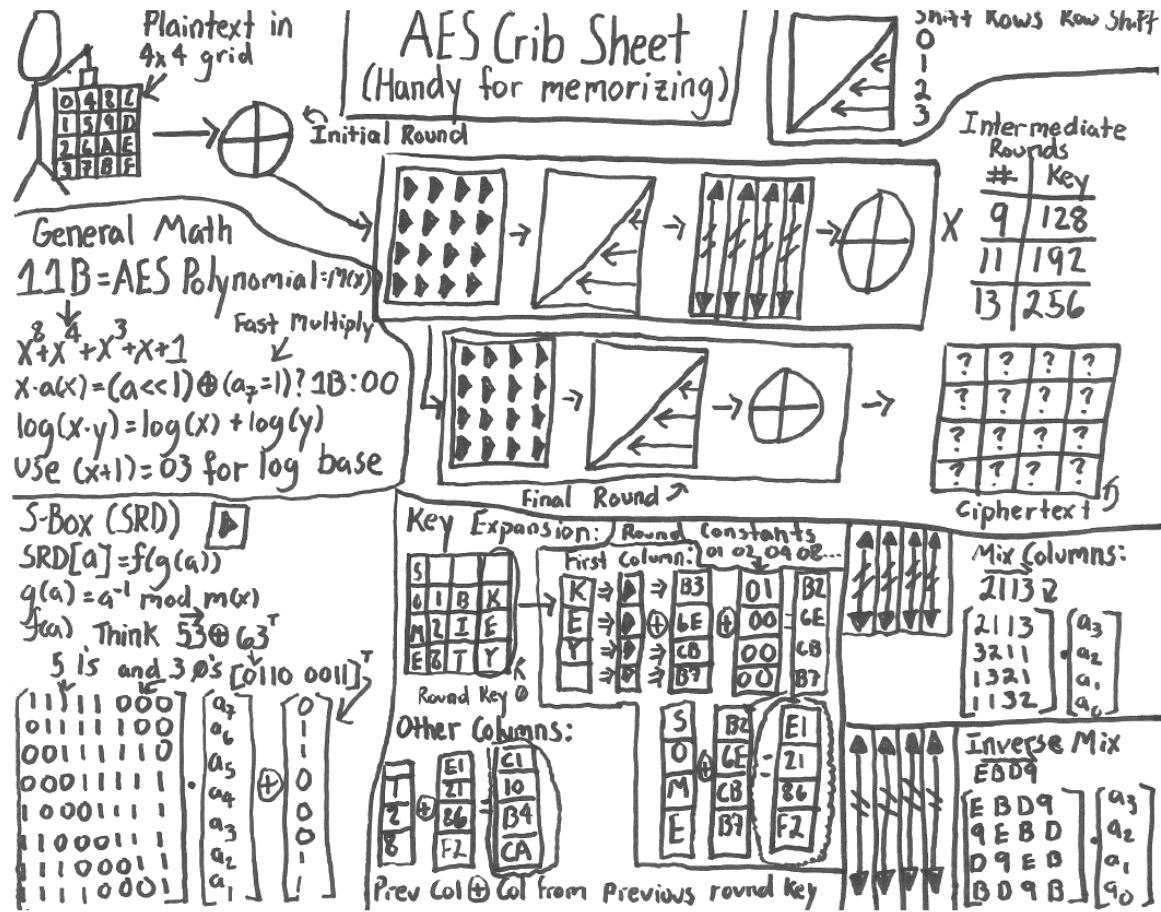 Plaintext in
4x4 grid
0 4 8 C
1 5 9 D
2 6 A E
3 7 B F
Initial Round
AES Crib Sheet
(Handy for memorizing)
Shift Rows Row Shift
0
1
2
3
Intermediate
Rounds
# Key
9 128
11 192
13 256
X
General Math
11B=AES Polynomial=M(x)
x⁸+x⁴+x³+x+1
Fast Multiply
x·a(x)=(a<<1)⊕(a₇=1)?1B:00
log(x·y)=log(x)+log(y)
use (x+1)=03 for log base
Final Round
? ? ? ?
? ? ? ?
? ? ? ?
? ? ? ?
Ciphertext
S-Box (SRD)
SRD[a]=f(g(a))
g(a)=a⁻¹ mod m(x)
f(a) Think 53⊕63ᵀ
5 1s and 3 0's [0110 0011]ᵀ
1 1 1 1 1 0 0 0
0 1 1 1 1 1 0 0
0 0 1 1 1 1 1 0
0 0 0 1 1 1 1 1
1 0 0 0 1 1 1 1
1 1 0 0 0 1 1 1
1 1 1 0 0 0 1 1
1 1 1 1 0 0 0 1
a₇
a₆
a₅
a₄
a₃
a₂
a₁
⊕
0
1
1
0
0
0
1
1
Key Expansion:
S
O 1 B K
M 2 I E
E 8 T Y
Round Key 0
Round Constants
01 02 04 08...
First Column:
K ⇒ ⇒ B3 01 B2
E ⇒ ⇒ ⊕ 6E ⊕ 00 = 6E
Y ⇒ ⇒ CB 00 CB
⇒ ⇒ B7 00 B7
S B2 E1
O ⊕ 6E = 21
M CB 86
E B7 F2
Other Columns:
E1 C1
1 ⊕ 21 = 10
2 86 B4
8 F2 CA
Prev Col ⊕ Col from Previous round key
Mix Columns:
2113
2 1 1 3
3 2 1 1
1 3 2 1
1 1 3 2
a₃
a₂
a₁
a₀
Inverse Mix
EBD9
E B D 9
9 E B D
D 9 E B
B D 9 B
a₃
a₂
a₁
a₀